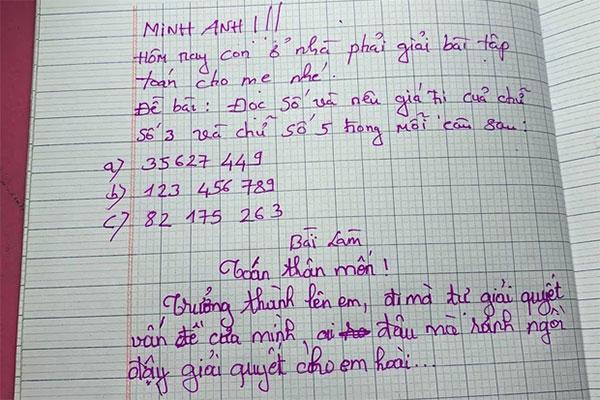 MINH ANH !!!
Hôm nay con ở nhà phải giải bài tập
toán cho mẹ nhé.
Đề bài : Đọc số và nêu giá trị của chữ
số 3 và chữ số 5 trong mỗi câu sau :
a) 35627 449
b) 123 456 789
c) 82 175 263
Bài Làm
Toán thân mến !
Trưởng thành lên em, đi mà tự giải quyết
vấn đề của mình, ai đâu mà rảnh ngồi
đây giải quyết cho em hoài...